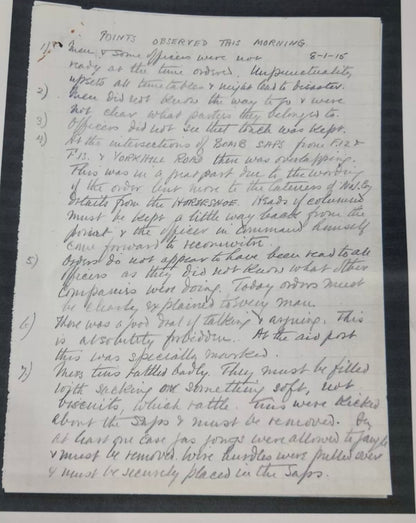 POINTS OBSERVED THIS MORNING
8-1-16
1) Men & some officers were not
ready at the time ordered. Unpunctuality
upsets all timetables & might lead to disaster.
2) Men did not know the way to go & were
not clear what parties they belonged to.
3) Officers did not see that touch was kept.
4) At the intersections of BOMB SAPS from F.12 &
F.13 & YORK HILL ROAD there was overlapping.
This was in a great part due to the wording
of the order but more to the lateness of No. Coy
details from the HORSESHOE. Heads of columns
must be kept a little way back from the
point & the officer in command himself
come forward to reconnoitre.
5) Orders do not appear to have been read to all
officers as they did not know what other
Companies were doing. Today orders must
be clearly explained to every man.
6) There was a good deal of talking & arguing. This
is absolutely forbidden. At the aid post
this was specially marked.
7) Mess tins rattled badly. They must be filled
with sacking or something soft, not
biscuits, which rattle. Tins were kicked
about the Saps & must be removed. In
at least one case gas gongs were allowed to jangle
& must be removed. Wire hurdles were pulled over
& must be securely placed in the Saps.